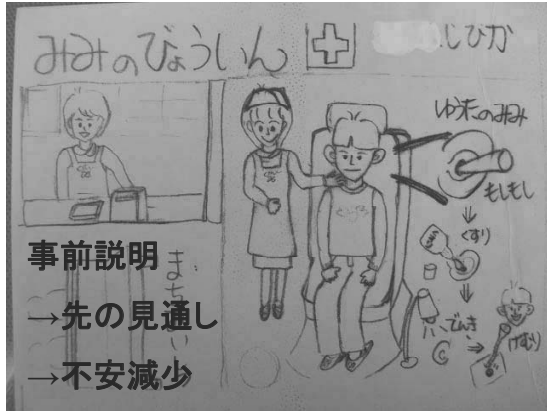 みみのびょういん
じびか
ゆうたのみみ
もしもし
くすり
でんき
けむり
まちあい
事前説明
→先の見通し
→不安減少